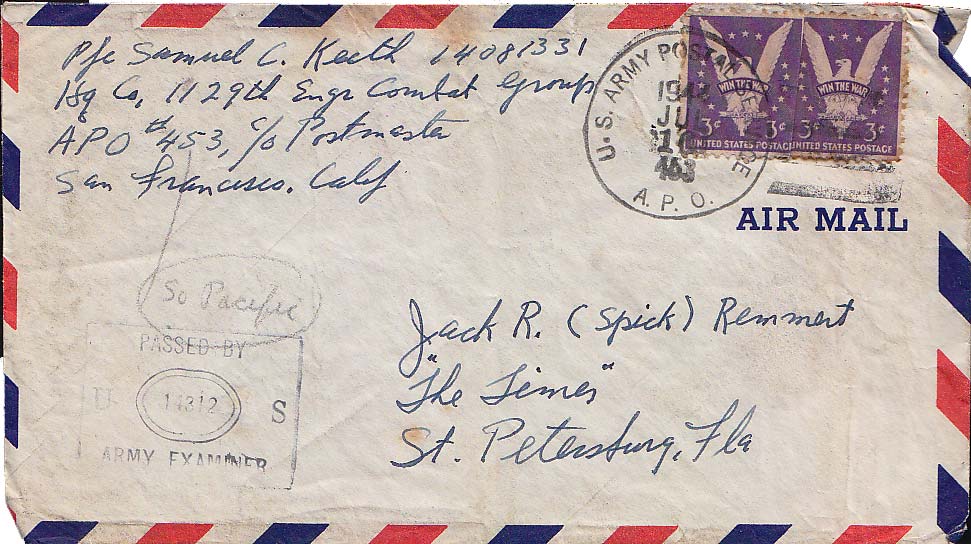 Pfc Samuel C. Keeth 14081331
Hq Co, 1129th Engr Combat Group
APO #453, c/o Postmaster
San Francisco. Calif
U.S. ARMY POSTAL SERVICE
1944
JUL
17
453
A. P. O.
WIN THE WAR WIN THE WAR
3¢ 3¢ 3¢
UNITED STATES POSTAGE UNITED STATES POSTAGE
AIR MAIL
So Pacific
PASSED BY
U 14312 S
ARMY EXAMINER
Jack R. (Spick) Remmert
"The Times"
St. Petersburg, Fla